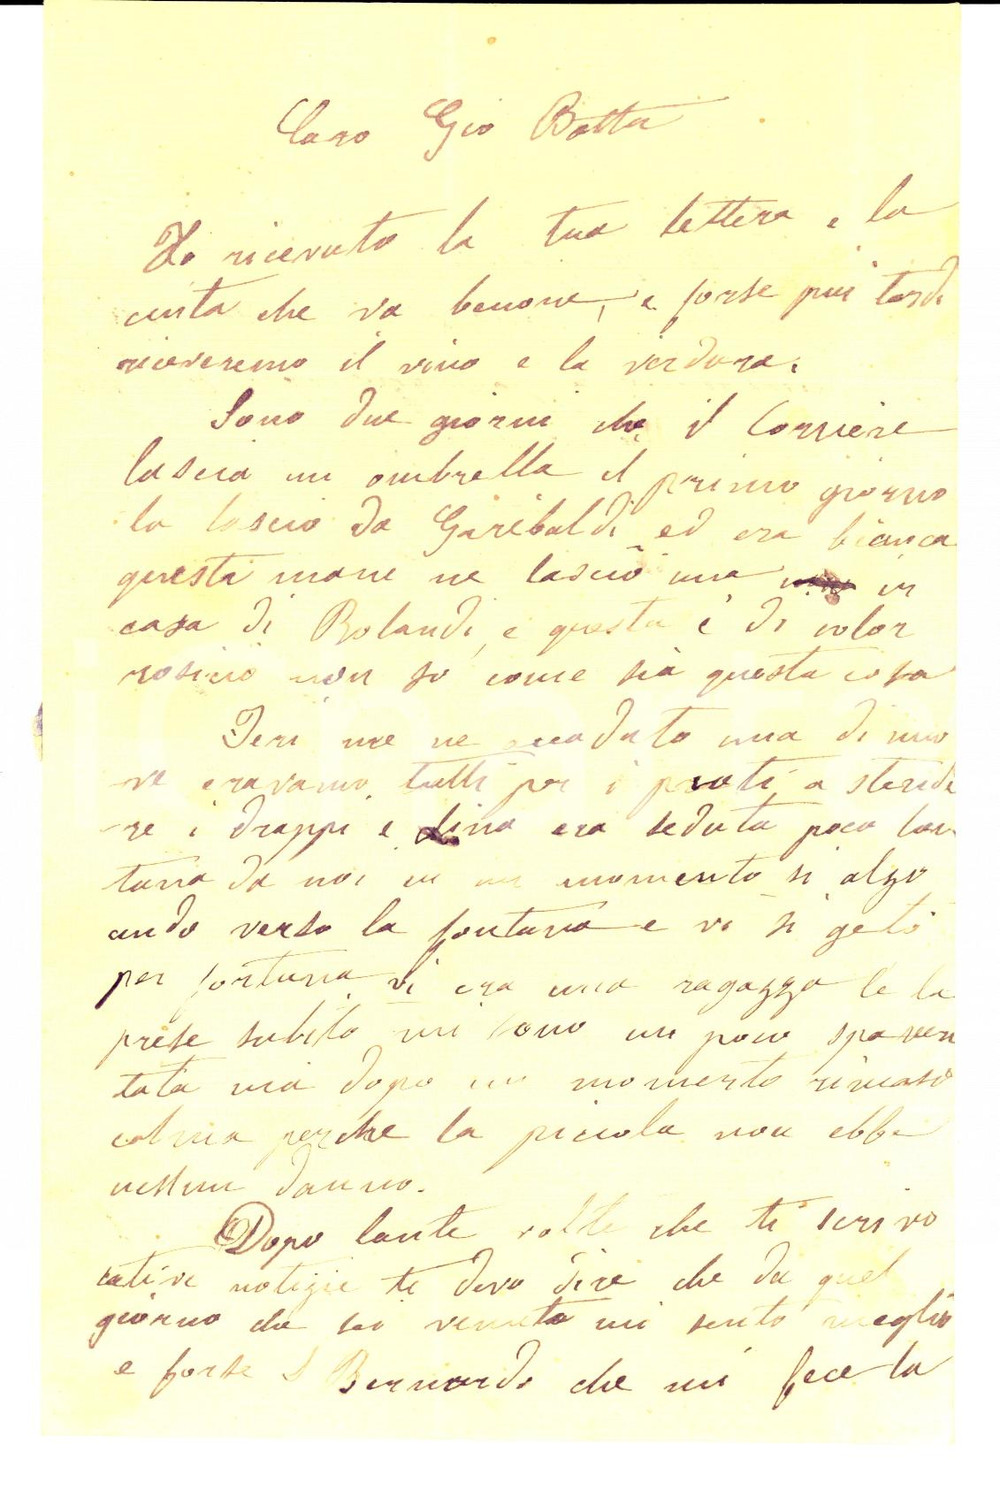 Caro Gio Batta
Ho ricevuto la tua lettera e la
cinta che va benone, e forse piu tardi
riceveremo il vino e la verdura.
Sono due giorni che il Corriere
lascia un ombrella il primo giorno
la lascio da Garibaldi ed era bianca
questa mane ne lasciò una in
casa di Rolandi, e questa è di color
rosicio non so come sia questa cosa
Ieri me ne accaduto una di nuo
ve eravamo tutti per i prati a stende
re i drappi e Lina era seduta poco lon
tana da noi in un momento si alzo
ando verso la fontana e vi si getò
per fortuna vi era una ragazza le la
prese subito mi sono un poco spaven
tata ma dopo un momento rimasi
calma perche la piccola non ebbe
nessun danno.
Dopo tante volte che ti scrivo
cative notizie ti devo dire che da quel
giorno che sei venuto mi sento meglio
e forse S Bernardo che mi fece la